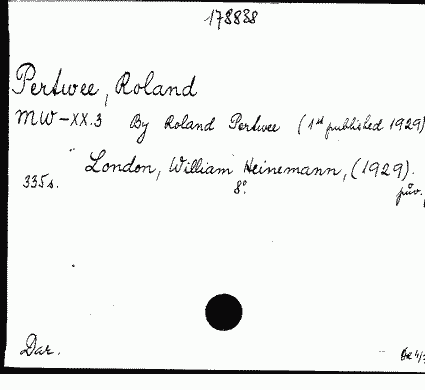 178838
Pertwee, Roland
MW-XX.3 By Roland Pertwee (1st published 1929)
London, William Heinemann, (1929).
335s. 8°. pův.
Dar.